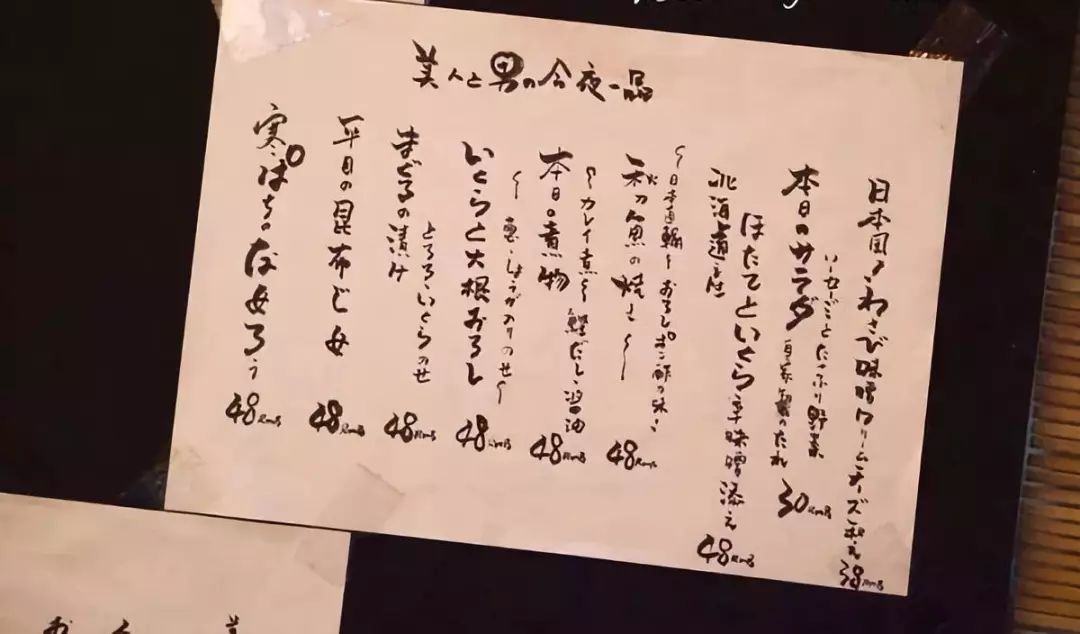 美人と男の今夜一品
日本国産わさび味噌クリームチーズ和え
38RMB
本日のサラダ
たっぷり野菜
自家製のたれ
30RMB
北海道産
ほたてといくら辛味噌添え
48RMB
秋刀魚の焼き
おろしポン酢の味
48RMB
本日の煮物
〜カレイ煮〜
鰹だし醤油
48RMB
いくらと大根おろし
しょうが のせ〜
48RMB
まぐろの漬け
とろろいくらのせ
48RMB
平目の昆布じめ
48RMB
寒
48RMB